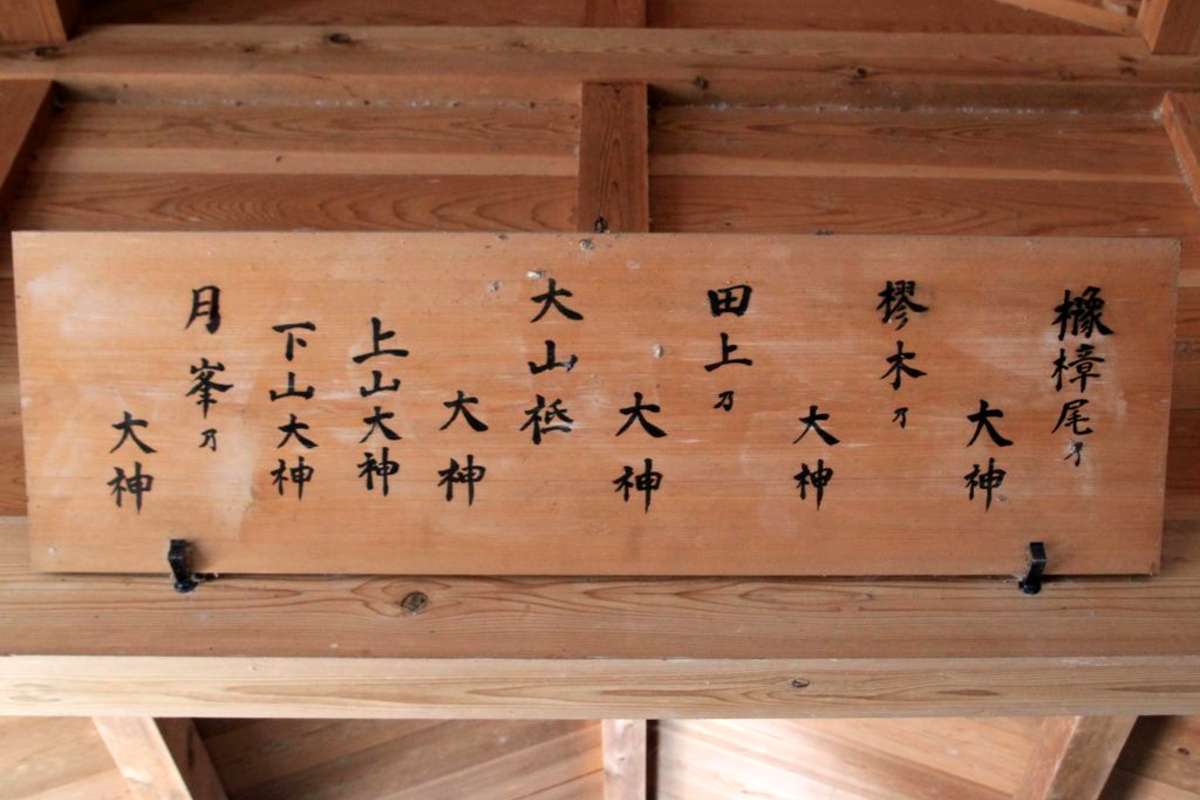 橡樟尾乃
大神
樛木乃
大神
田上乃
大神
大山祇
大神
上山大神
下山大神
月峯乃
大神